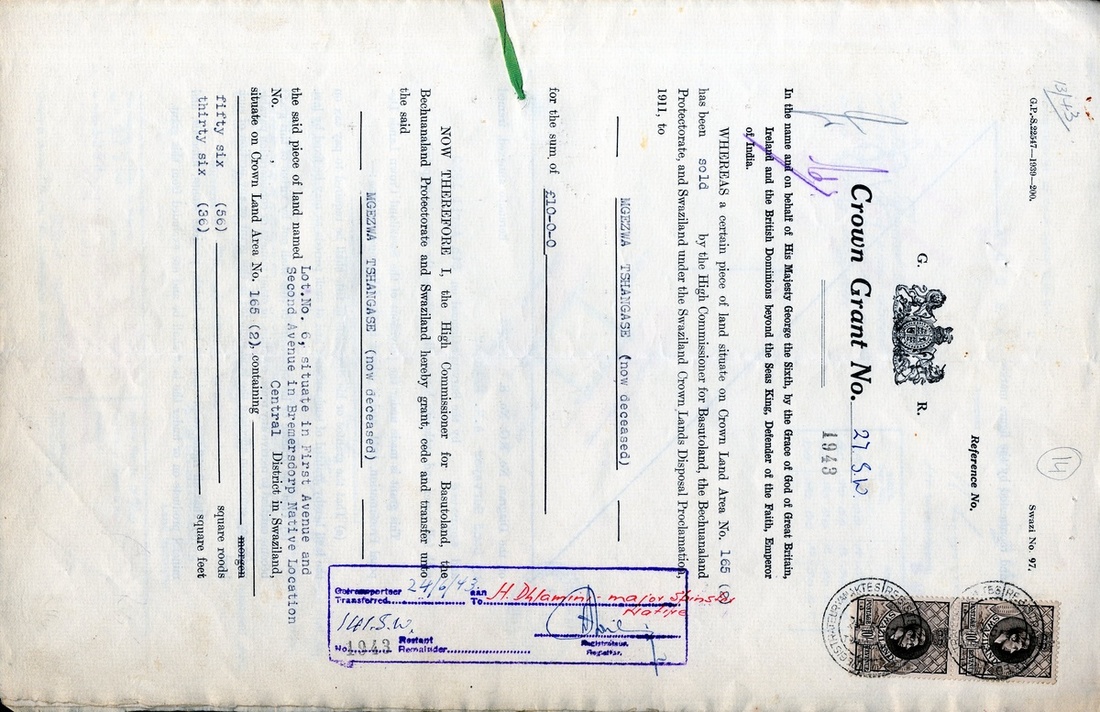 13/43
G.P.-S.22547—1939—200.
Swazi No. 97.
14
Reference No.
G. R.
Crown Grant No. 27 S.W.
1943
In the name and on behalf of His Majesty George the Sixth, by the Grace of God of Great Britain,
Ireland and the British Dominions beyond the Seas King, Defender of the Faith, Emperor
of India.
WHEREAS a certain piece of land situate on Crown Land Area No. 165 (2)
has been sold by the High Commissioner for Basutoland, the Bechuanaland
Protectorate, and Swaziland under the Swaziland Crown Lands Disposal Proclamation,
1911, to
MGEZWA TSHANGASE (now deceased)
for the sum of £10-0-0
NOW THEREFORE I, the High Commissioner for Basutoland, the
Bechuanaland Protectorate and Swaziland hereby grant, cede and transfer unto
the said
MGEZWA TSHANGASE (now deceased)
the said piece of land named Lot.No. 6, situate in First Avenue and
Second Avenue in Bremersdorp Native Location
No. , Central District in Swaziland,
situate on Crown Land Area No. 165 (2), containing
morgen
fifty six (56) square roods
thirty six (36) square feet
Getransporteer 24/6/43 aan H Dhlamini - major spinster
Transferred To Native
141 S.W.
No. 1943 Restant
Remainder
Registrateur.
Registrar.